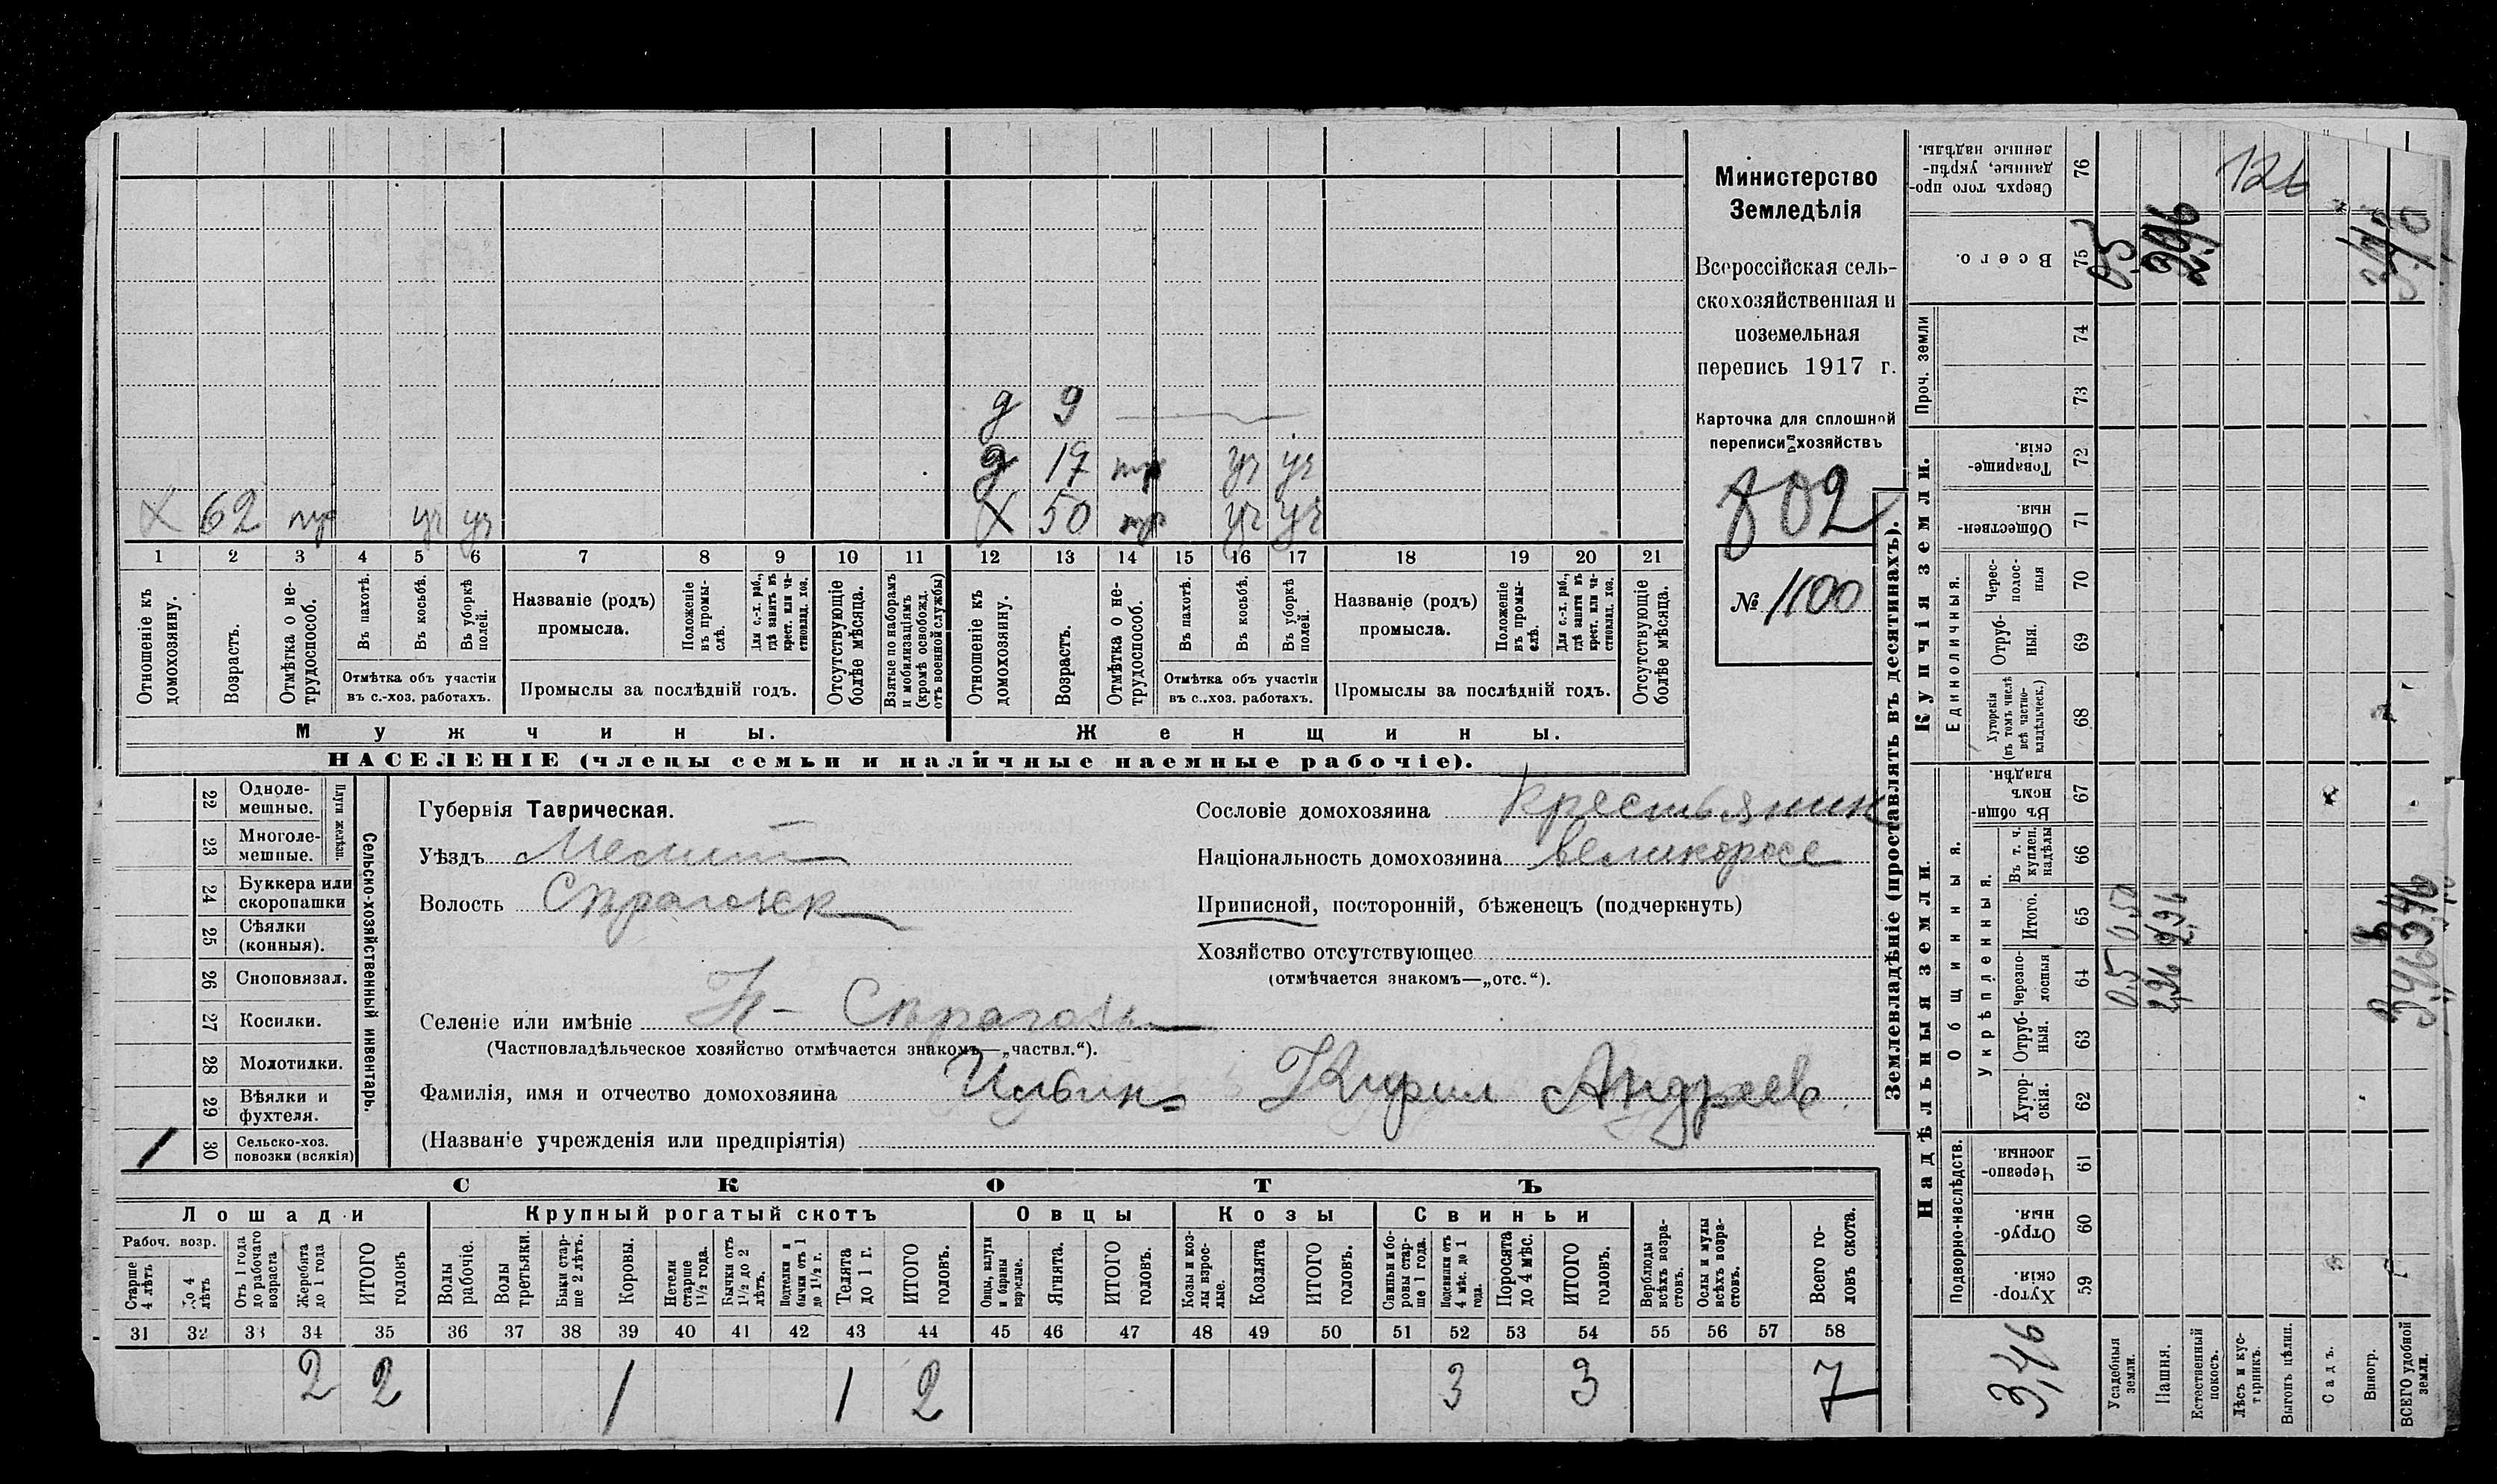 Министерство
Земледѣлія
Всероссійская сель-
скохозяйственная и
поземельная
перепись 1917 г.
Карточка для сплошной
переписи хозяйствъ
802
№ 1100
д 9
д 17 тр уч уч
Х 62 тр уч уч Х 50 тр уч уч
1 2 3 4 5 6 7 8 9 10 11 12 13 14 15 16 17 18 19 20 21
Отношеніе къ домохозяину.
Возрастъ.
Отмѣтка о не-трудоспособ.
Въ пахотѣ.
Въ косьбѣ.
Въ уборкѣ полей.
Отмѣтка объ участіи
въ с.-хоз. работахъ.
Названіе (родъ)
промысла.
Положеніе въ промы-слѣ.
Для с.-х. раб., гдѣ занятъ въ крест. или ча-стновлад. хоз.
Промыслы за послѣдній годъ.
Отсутствующіе болѣе мѣсяца.
Взятые по наборамъ и мобилизаціямъ (кромѣ освобожд. отъ военной службы)
Отношеніе къ домохозяину.
Возрастъ.
Отмѣтка о не-трудоспособ.
Въ пахотѣ.
Въ косьбѣ.
Въ уборкѣ полей.
Отмѣтка объ участіи
въ с..хоз. работахъ.
Названіе (родъ)
промысла.
Положеніе въ промы-слѣ.
Для с.-х. раб., гдѣ занята въ крест. или ча-стновлад. хоз.
Промыслы за послѣдній годъ.
Отсутствующіе болѣе мѣсяца.
Мужчины. Женщины.
НАСЕЛЕНІЕ (члены семьи и наличные наемные рабочіе).
Сельско-хозяйственный инвентарь.
Плуги желѣзн.
22 Одноле-мешные.
23 Многоле-мешные.
24 Буккера или скоропашки
25 Сѣялки (конныя).
26 Сноповязал.
27 Косилки.
28 Молотилки.
29 Вѣялки и фухтеля.
1 30 Сельско-хоз. повозки (всякія)
Губернія Таврическая.
Уѣздъ Мелит
Волость
Селеніе или имѣніе
(Частповладѣльческое хозяйство отмѣчается знакомъ—„частвл.“).
Фамилія, имя и отчество домохозяина Ильин Кирил Андреев
(Названіе учрежденія или предпріятія)
Сословіе домохозяина крестьянин
Національность домохозяина великоросс
Приписной, посторонній, бѣженецъ (подчеркнуть)
Хозяйство отсутствующее
(отмѣчается знакомъ—„отс.“).
СКОТЪ
Лошади Крупный рогатый скотъ Овцы Козы Свиньи
Рабоч. возр.
Старше 4 лѣтъ
До 4 лѣтъ
Отъ 1 года до рабочаго возраста
Жеребята до 1 года
ИТОГО головъ
Волы рабочіе.
Волы третьяки.
Быки стар-ше 2 лѣтъ.
Коровы.
Нетели старше 1½ года.
Бычки отъ 1½ до 2 лѣтъ.
Подтелки и бычки отъ 1 до 1½ г.
Телята до 1 г.
ИТОГО головъ.
Овцы, валухи и бараны взрослые.
Ягнята.
ИТОГО головъ.
Козы и коз-лы взрос-лые.
Козлята
ИТОГО головъ.
Свиньи и бо-ровы стар-ше 1 года.
Подсвинки отъ 4 мѣс. до 1 года.
Поросята до 4 мѣс.
ИТОГО головъ.
Верблюды всѣхъ возра-стовъ.
Ослы и мулы всѣхъ возра-стовъ.
Всего го-ловъ скота.
31 32 33 34 35 36 37 38 39 40 41 42 43 44 45 46 47 48 49 50 51 52 53 54 55 56 57 58
2 2 1 1 2 3 3 7
Землевладѣніе (проставлять въ десятинахъ).
Купчія земли.
Надѣльныя земли.
Сверхъ того про-данные, укрѣп-ленные надѣлы. 76
126
Всего. 75
Проч. земли 74 73
Товарище-скія. 72
Обществен-ныя. 71
Единоличныя.
Черес-полос-ныя 70
Отруб-ныя. 69
Хуторскія (въ томъ числѣ всѣ частно-владѣльческ.) 68
Въ общи-номъ владѣн. 67
Общинныя.
Укрѣпленныя.
Въ т. ч. куплен. надѣлы 66
Итого. 65
Черезпо-лосныя 64
0,5 2,96 3,46
Отруб-ныя. 63
Хутор-скія. 62
Подворно-наслѣдств.
Черезпо-лосныя. 61
Отруб-ныя. 60
Хутор-скія. 59
3,46
Усадебныя земли.
Пашня.
Естественный покосъ.
Лѣсъ и кус-тарникъ.
Выгонъ цѣлин.
Садъ.
Виногр.
ВСЕГО удобной земли.